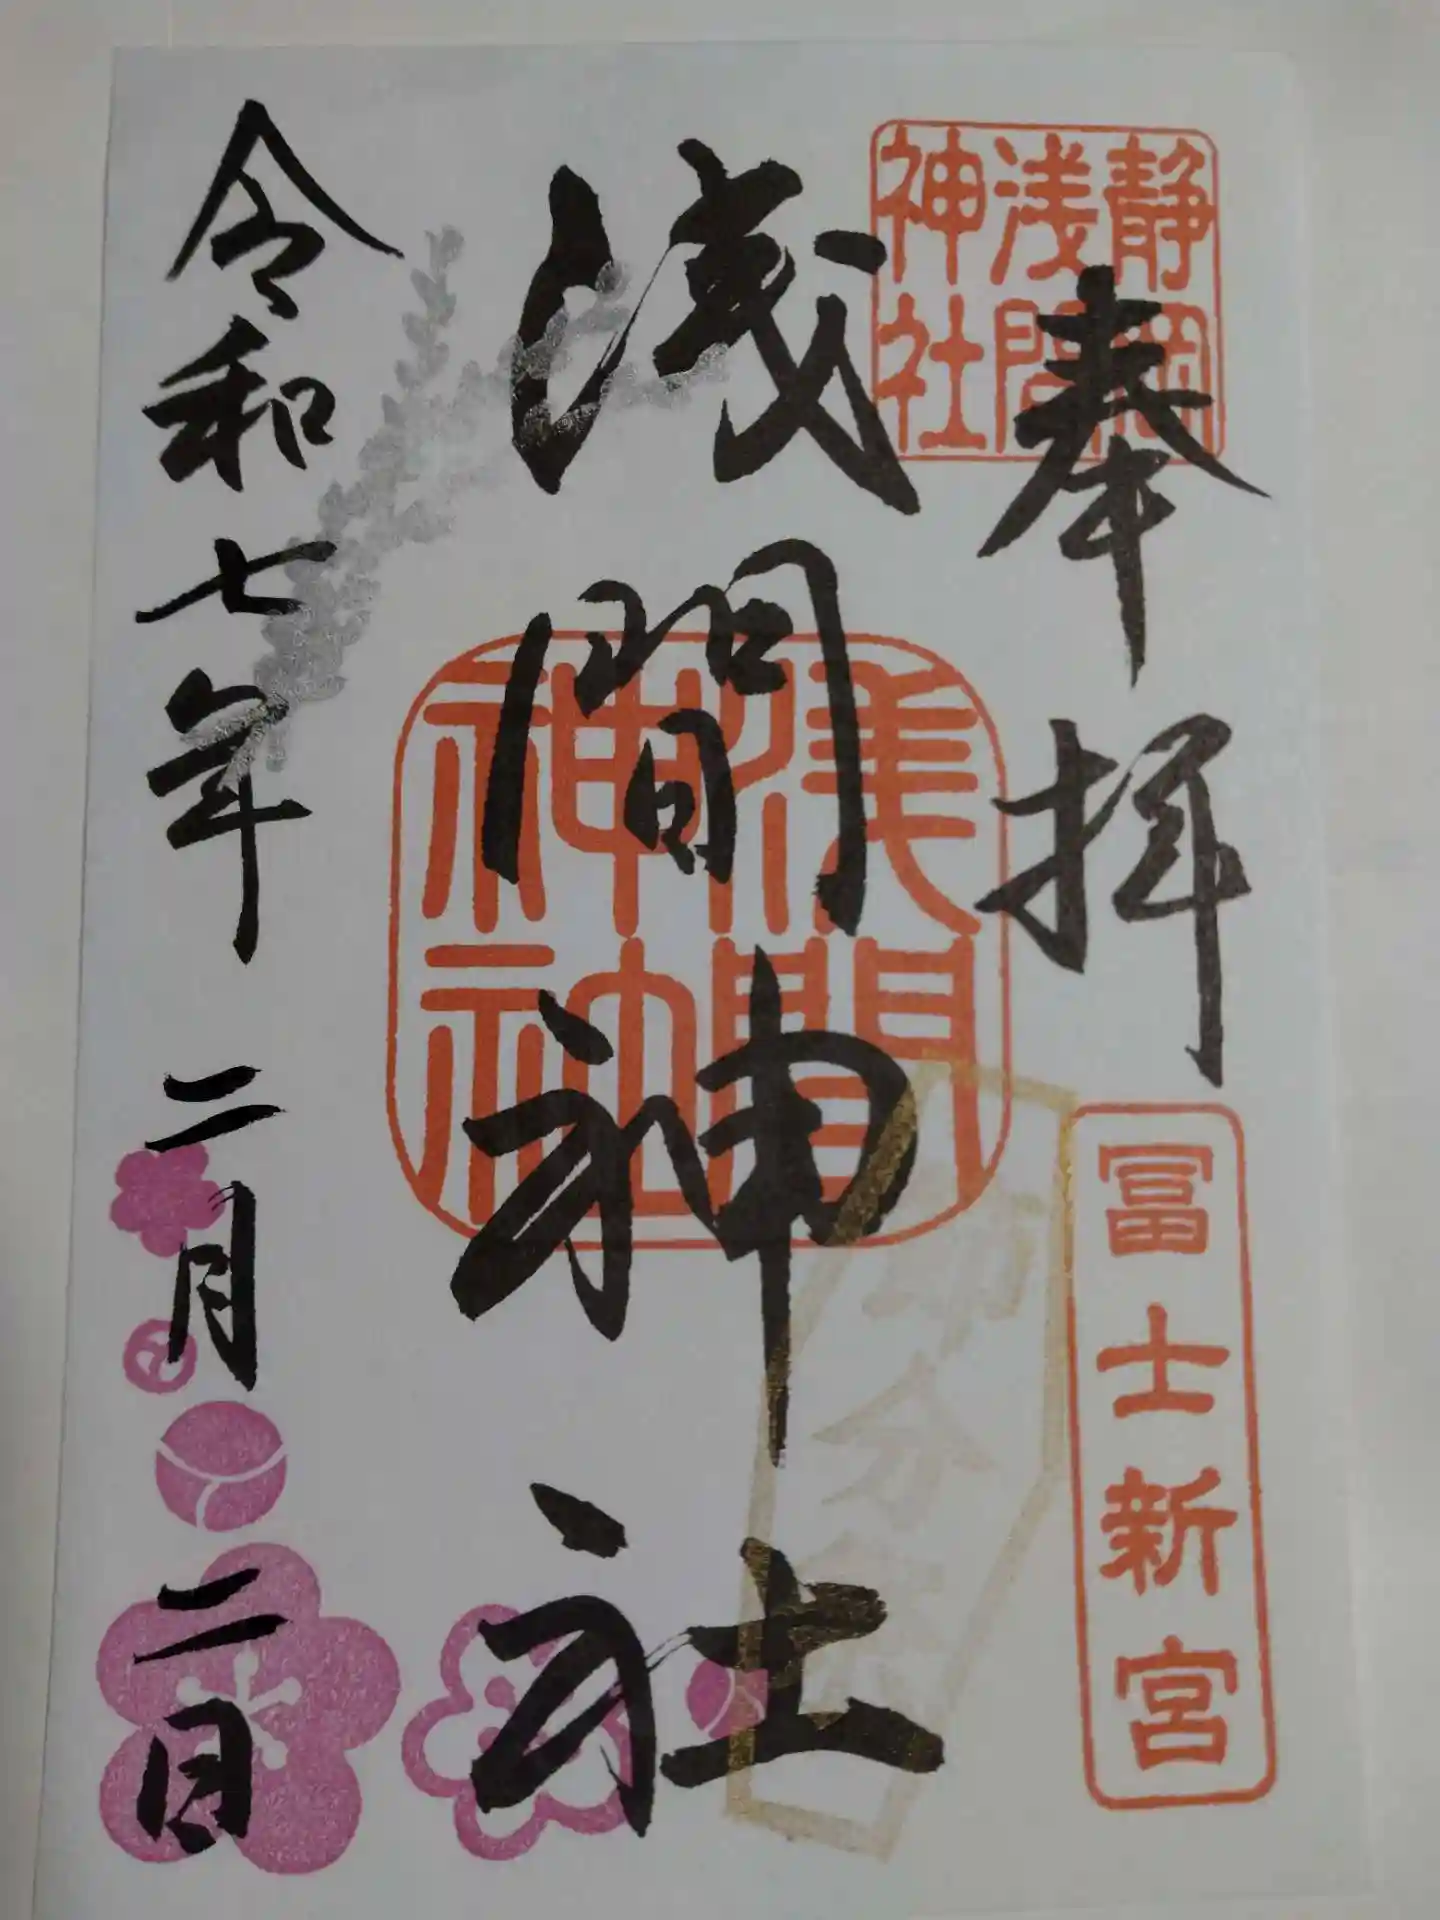 静岡
浅間
神社
奉拝
冨士新宮
浅間神社
浅間
神社
節分祭
令和七年 二月 二日